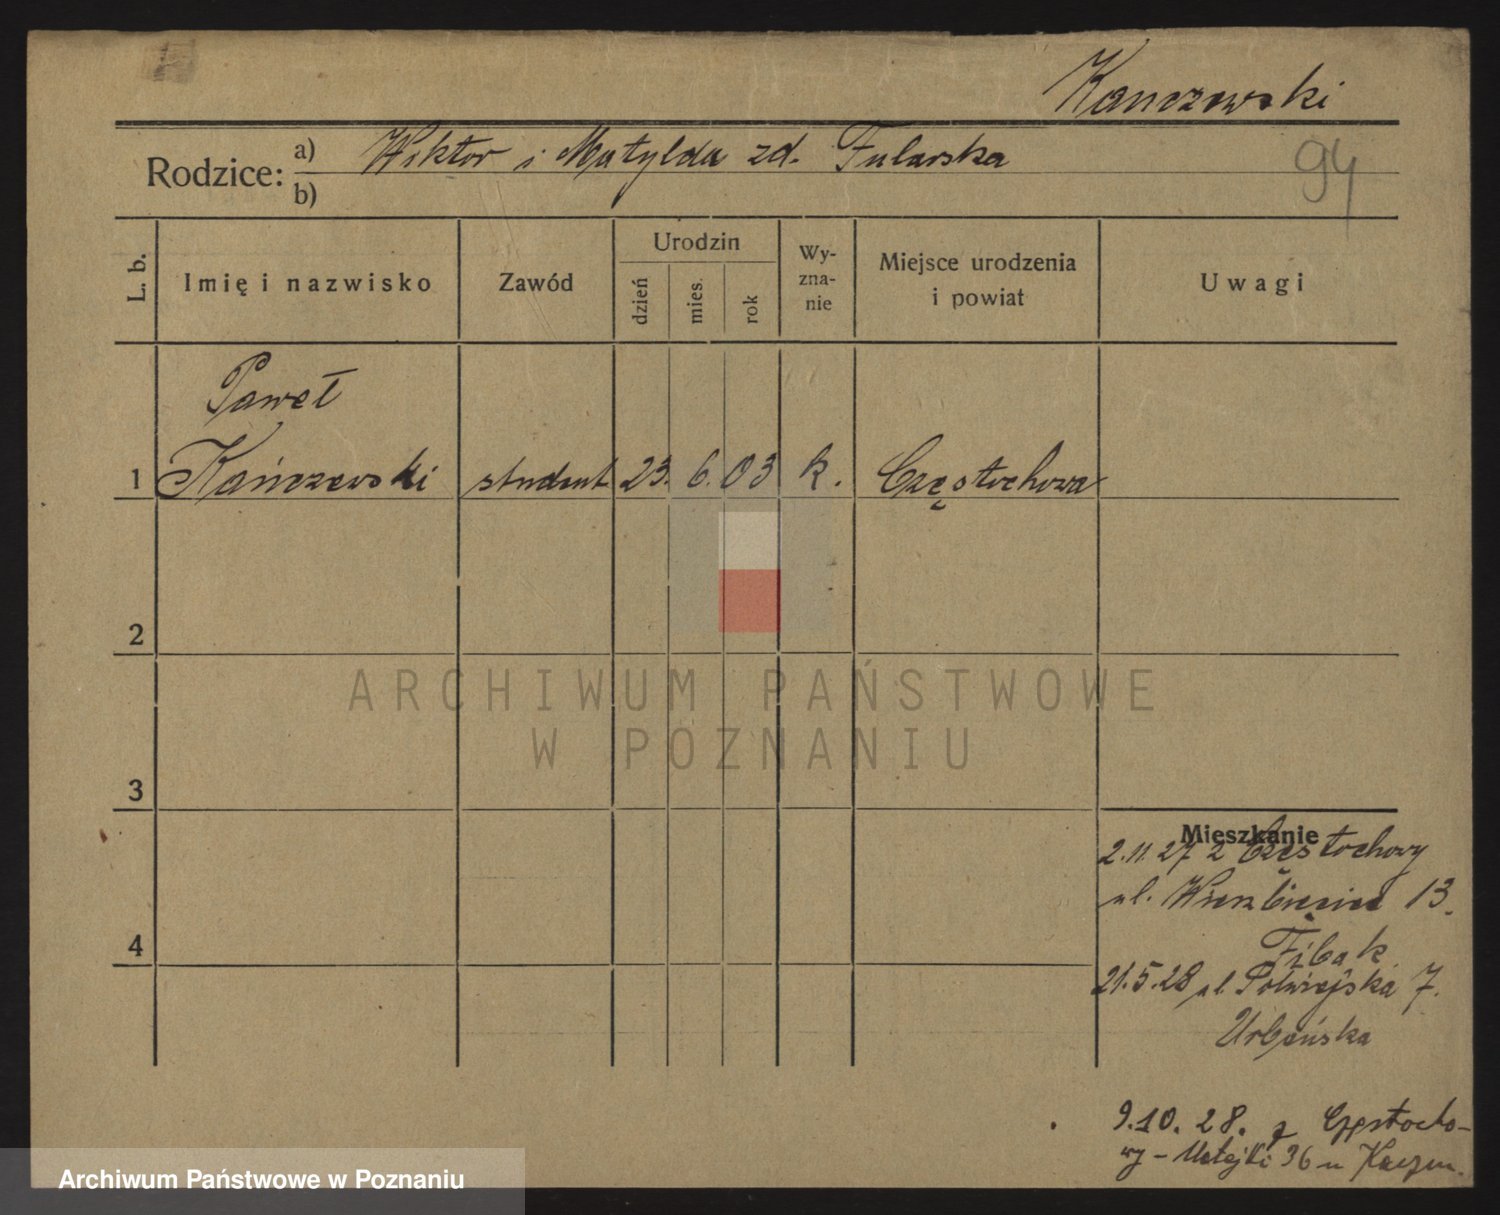 Kanczewski
Rodzice: a) Wiktor i Matylda zd. Fularska
b)
94
L. b. Imię i nazwisko Zawód Urodzin dzień mies. rok Wy-zna-nie Miejsce urodzenia i powiat Uwagi
Paweł
1 Kańczewski student 23. 6. 03 k. Częstochowa
2
ARCHIWUM PAŃSTWOWE
W POZNANIU
3
Mieszkanie
2.11.27 z Częstochowy
ul. Wierzbięcice 13.
Fibak
4
21.5.28 ul. Półwiejska 7.
Urbańska
9.10.28. z Częstocho-
wy - Matejki 36 u
Archiwum Państwowe w Poznaniu